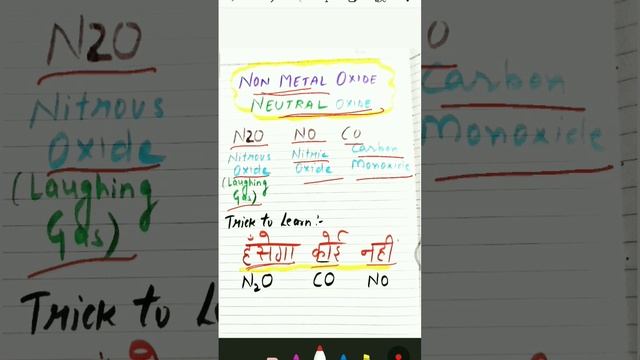 N2O
Nitrous
Oxide
(Laughing
Gas)
Trick to Le
NON METAL OXIDE
NEUTRAL OXIDE
N2O NO CO
Nitrous Nitric Carbon
Oxide Oxide Monoxide
(Laughing
Gas)
Trick to Learn :-
हँसेगा कोई नही
N₂O CO NO
O
Carbon
Monoxide